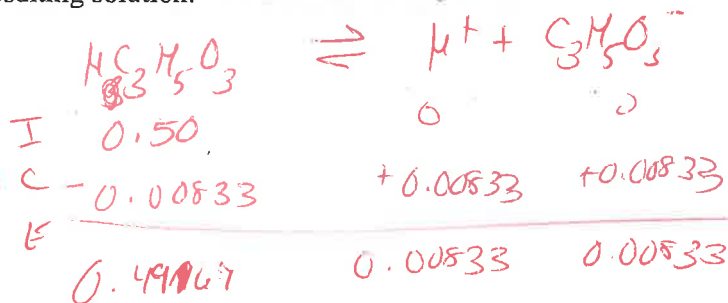 esulting solution.
HC3H5O3 ⇌ H+ + C3H5O3-
I 0.50 0 0
C -0.00833 +0.00833 +0.00833
E 0.49167 0.00833 0.00833